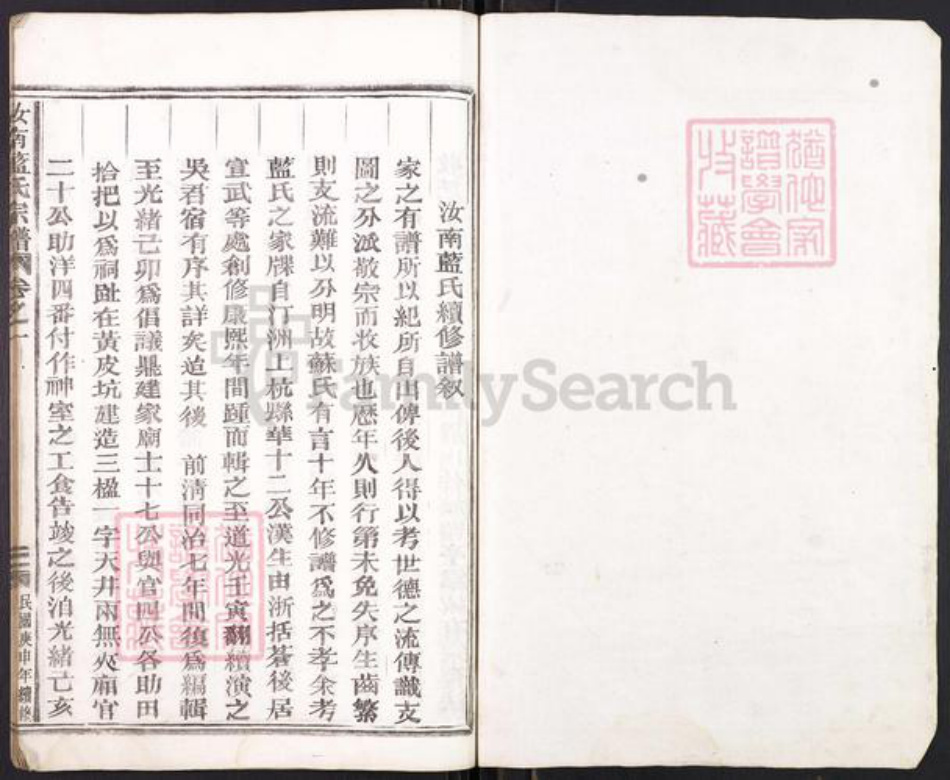 汝南藍氏續修譜叙
家之有譜所以紀所自出俾後人得以考世德之流傳識支
圖之分派敬宗而收族也歷年久則行第未免失序生齒繁
則支流難以分明故蘇氏有言十年不修譜爲之不孝余考
藍氏之家牒自汀洲上杭縣華十二公漢生由浙括蒼後居
宣武等處創修康熙年間踵而輯之至道光壬寅翻續演之
吳君宿有序其詳矣迨其後 前清同治七年間復爲編輯
至光緒己卯爲倡議鼎建家廟士十七公與官四公各助田
拾把以爲祠趾在黃皮坑建造三楹一字天井兩無夾廂官
二十公助洋四番付作神室之工食告竣之後洎光緒己亥
汝南藍氏宗譜 卷之一 民國庚申年續修
猶他家
譜學會
收藏
FamilySearch